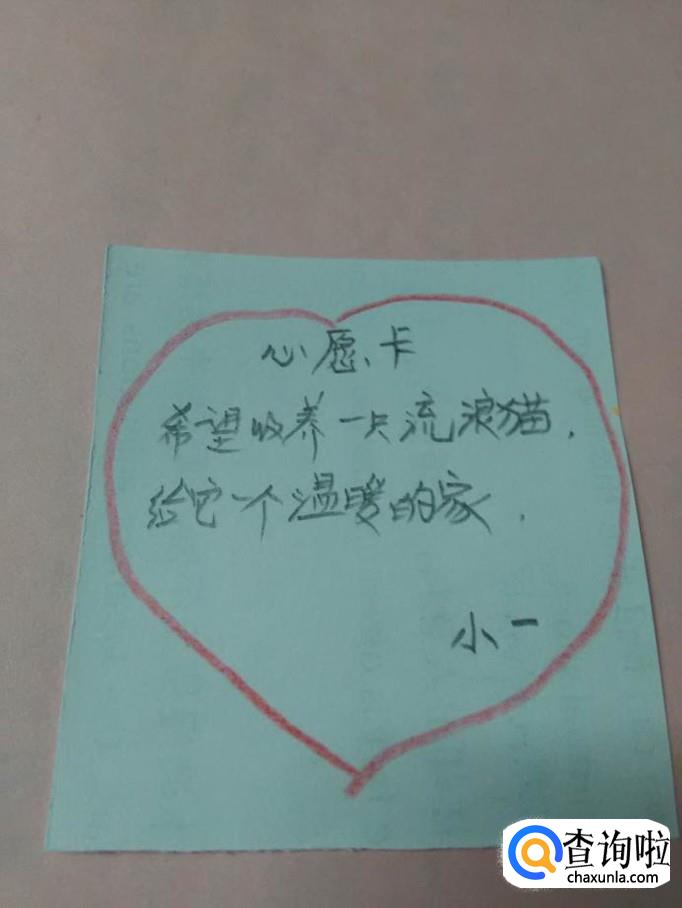 心愿卡
希望收养一只流浪猫，
给它一个温暖的家.
小一
查询啦
chaxunla.com